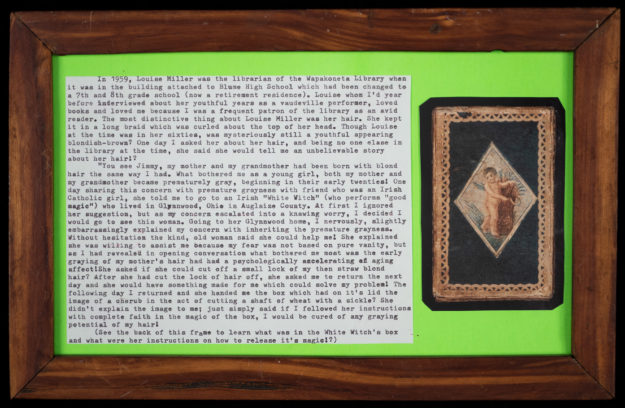 In 1959, Louise Miller was the librarian of the Wapakoneta Library when
it was in the building attached to Blume High School which had been changed to
a 7th and 8th grade school (now a retirement residence). Louise whom I'd year
before inderviewed about her youthful years as a vaudeville performer, loved
books and loved me because I was a frequent patron of the library as an avid
reader. The most distinctive thing about Louise Miller was her hair. She kept
it in a long braid which was curled about the top of her head. Though Louise
at the time was in her sixties, was mysteriously still a youthful appearing
blondish-brown? One day I asked her about her hair, and being no one else in
the library at the time, she said she would tell me an unbelievable story
about her hair!?
"You see Jimmy, my mother and my grandmother had been born with blond
hair the same way I had. What bothered me as a young girl, both my mother and
my grandmother became prematurely gray, beginning in their early twenties! One
day sharing this concern with premature grayness with friend who was an Irish
Catholic girl, she told me to go to an Irish "White Witch" (who performs "good
magic") who lived in Glynnwood, Ohio in Auglaize County. At first I ignored
her suggestion, but as my concern escalated into a knawing worry, I decided I
would go to see this woman. Going to her Glynnwood home, I nervously, slightly
embarrassingly explained my concern with inheriting the premature grayness.
Without hesitation the kind, old woman said she could help me! She explained
she was willing to assist me because my fear was not based on pure vanity, but
as I had revealed in opening conversation what bothered me most was the early
graying of my mother's hair had had a psychologically accelerating of aging
affect!She asked if she could cut off a small lock of my then straw blond
hair? After she had cut the lock of hair off, she asked me to return the next
day and she would have something made for me which could solve my problem! The
following day I returned and she handed me the box which had on it's lid the
image of a cherub in the act of cutting a shaft of wheat with a sickle? She
didn't explain the image to me; just simply said if I followed her instructions
with complete faith in the magic of the box, I would be cured of any graying
potential of my hair!
(See the back of this frame to learn what was in the White Witch's box
and what were her instructions on how to release it's magic!?)